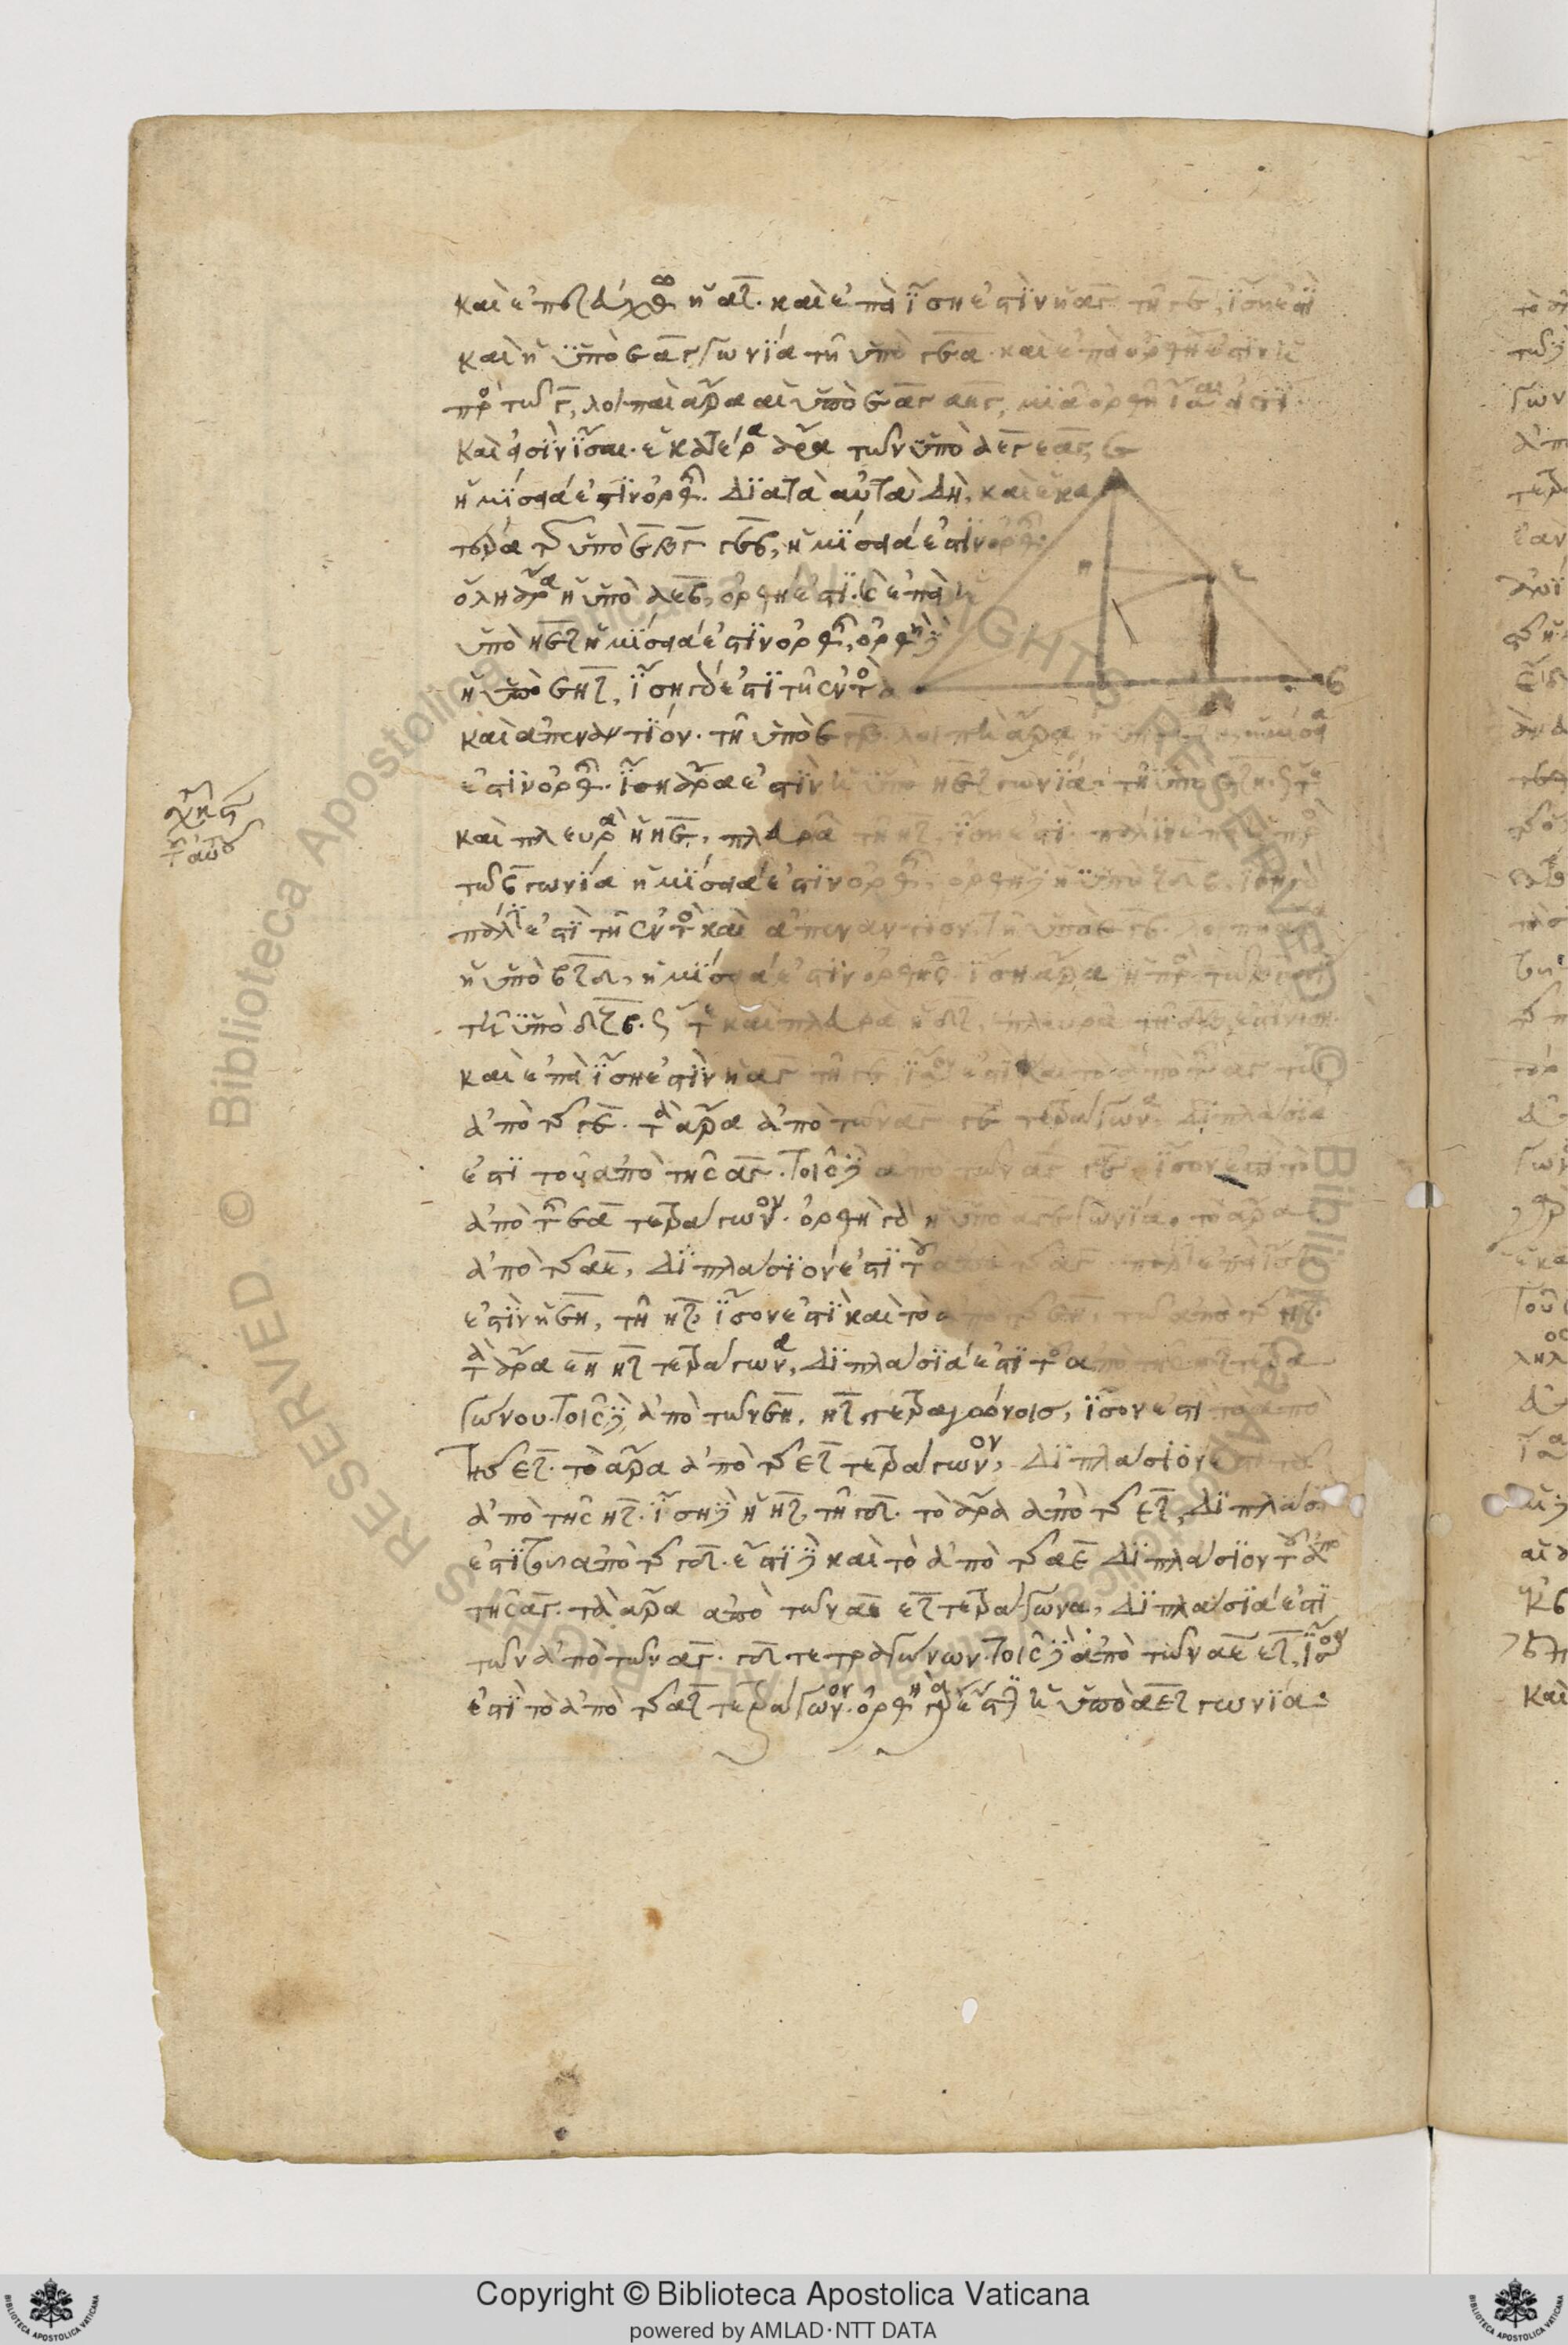 καὶ ἐπεζεύχθω ἡ αζ. καὶ ἐπεὶ ἴση ἐστὶν ἡ αγ τῇ γε, ἴση ἐστὶ
καὶ ἡ ὑπὸ εαγ γωνία τῇ ὑπὸ γεα. καὶ ἐπεὶ ὀρθή ἐστιν ἡ
πρὸς τῷ γ, λοιπαὶ ἄρα αἱ ὑπὸ εαγ αεγ, μιᾷ ὀρθῇ ἴσαι εἰσί.
καὶ εἰσὶν ἴσαι. ἑκατέρα ἄρα τῶν ὑπὸ αεγ εαγ
ἡμίσειά ἐστιν ὀρθῆς. διὰ τὰ αὐτὰ δὴ, καὶ ἑκα
τέρα τῶν ὑπὸ εβγ γεβ, ἡμίσειά ἐστιν ὀρθῆς
ὅλη ἄρα ἡ ὑπὸ αεβ, ὀρθή ἐστι. καὶ ἐπεὶ ἡ
ὑπὸ ηεζ ἡμίσειά ἐστιν ὀρθῆς, ὀρθὴ δὲ
ἡ ὑπὸ εηζ, ἴση γάρ ἐστι τῇ ἐντὸς
καὶ ἀπεναντίον. τῇ ὑπὸ εγβ. λοιπὴ ἄρα
ἐστὶν ὀρθῆς. ἴση ἄρα ἐστὶν ἡ ὑπὸ ηεζ γωνία τῇ ὑπὸ εζη.
καὶ πλευρὰ ἡ ηε, πλευρᾷ τῇ ηζ, ἴση ἐστί. πάλιν ἐπεὶ ἡ πρὸς
τῷ β γωνία ἡμίσειά ἐστιν ὀρθῆς, ὀρθὴ δὲ ἡ ὑπὸ ζδβ, ἴση γὰρ
πάλιν ἐστὶ τῇ ἐντὸς καὶ ἀπεναντίον. τῇ ὑπὸ εγβ. λοιπὴ
ἡ ὑπὸ βζδ, ἡμίσειά ἐστιν ὀρθῆς. ἴση ἄρα ἡ πρὸς τῷ β γωνία
τῇ ὑπὸ δζβ. καὶ πλευρὰ ἡ δζ, πλευρᾷ τῇ δβ ἐστὶν ἴση.
καὶ ἐπεὶ ἴση ἐστὶν ἡ αγ τῇ γε, ἴσον ἐστὶ καὶ τὸ ἀπὸ τῆς αγ τῷ
ἀπὸ τῆς γε. τὰ ἄρα ἀπὸ τῶν αγ γε τετράγωνα διπλάσιά
ἐστι τοῦ ἀπὸ τῆς αγ. τοῖς δὲ ἀπὸ τῶν αγ γε, ἴσον ἐστὶ τὸ
ἀπὸ τῆς εα τετράγωνον. ὀρθὴ γὰρ ἡ ὑπὸ αγε γωνία. τὸ ἄρα
ἀπὸ τῆς αε, διπλάσιόν ἐστι τοῦ ἀπὸ τῆς αγ. πάλιν ἐπεὶ ἴση
ἐστὶν ἡ εη, τῇ ηζ, ἴσον ἐστὶ καὶ τὸ ἀπὸ τῆς εη, τῷ ἀπὸ τῆς ηζ.
τὰ ἄρα εη ηζ τετράγωνα, διπλάσιά ἐστι τοῦ ἀπὸ τῆς ηζ τετρα
γώνου. τοῖς δὲ ἀπὸ τῶν εη, ηζ τετραγώνοις, ἴσον ἐστὶ τὸ ἀπὸ
τῆς εζ. τὸ ἄρα ἀπὸ τῆς εζ τετράγωνον, διπλάσιόν ἐστι τοῦ
ἀπὸ τῆς ηζ. ἴση δὲ ἡ ηζ τῇ γδ. τὸ ἄρα ἀπὸ τῆς εζ, διπλάσιόν
ἐστι τοῦ ἀπὸ τῆς γδ. ἐστὶ δὲ καὶ τὸ ἀπὸ τῆς αε διπλάσιον τοῦ ἀπὸ
τῆς αγ. τὰ ἄρα ἀπὸ τῶν αε εζ τετράγωνα, διπλάσιά ἐστι
τῶν ἀπὸ τῶν αγ. γδ τετραγώνων. τοῖς δὲ ἀπὸ τῶν αε εζ, ἴσον
ἐστὶ τὸ ἀπὸ τῆς αζ τετράγωνον. ὀρθὴ γάρ ἐστιν ἡ ὑπὸ αεζ γωνία:
Copyright © Biblioteca Apostolica Vaticana
powered by AMLAD·NTT DATA